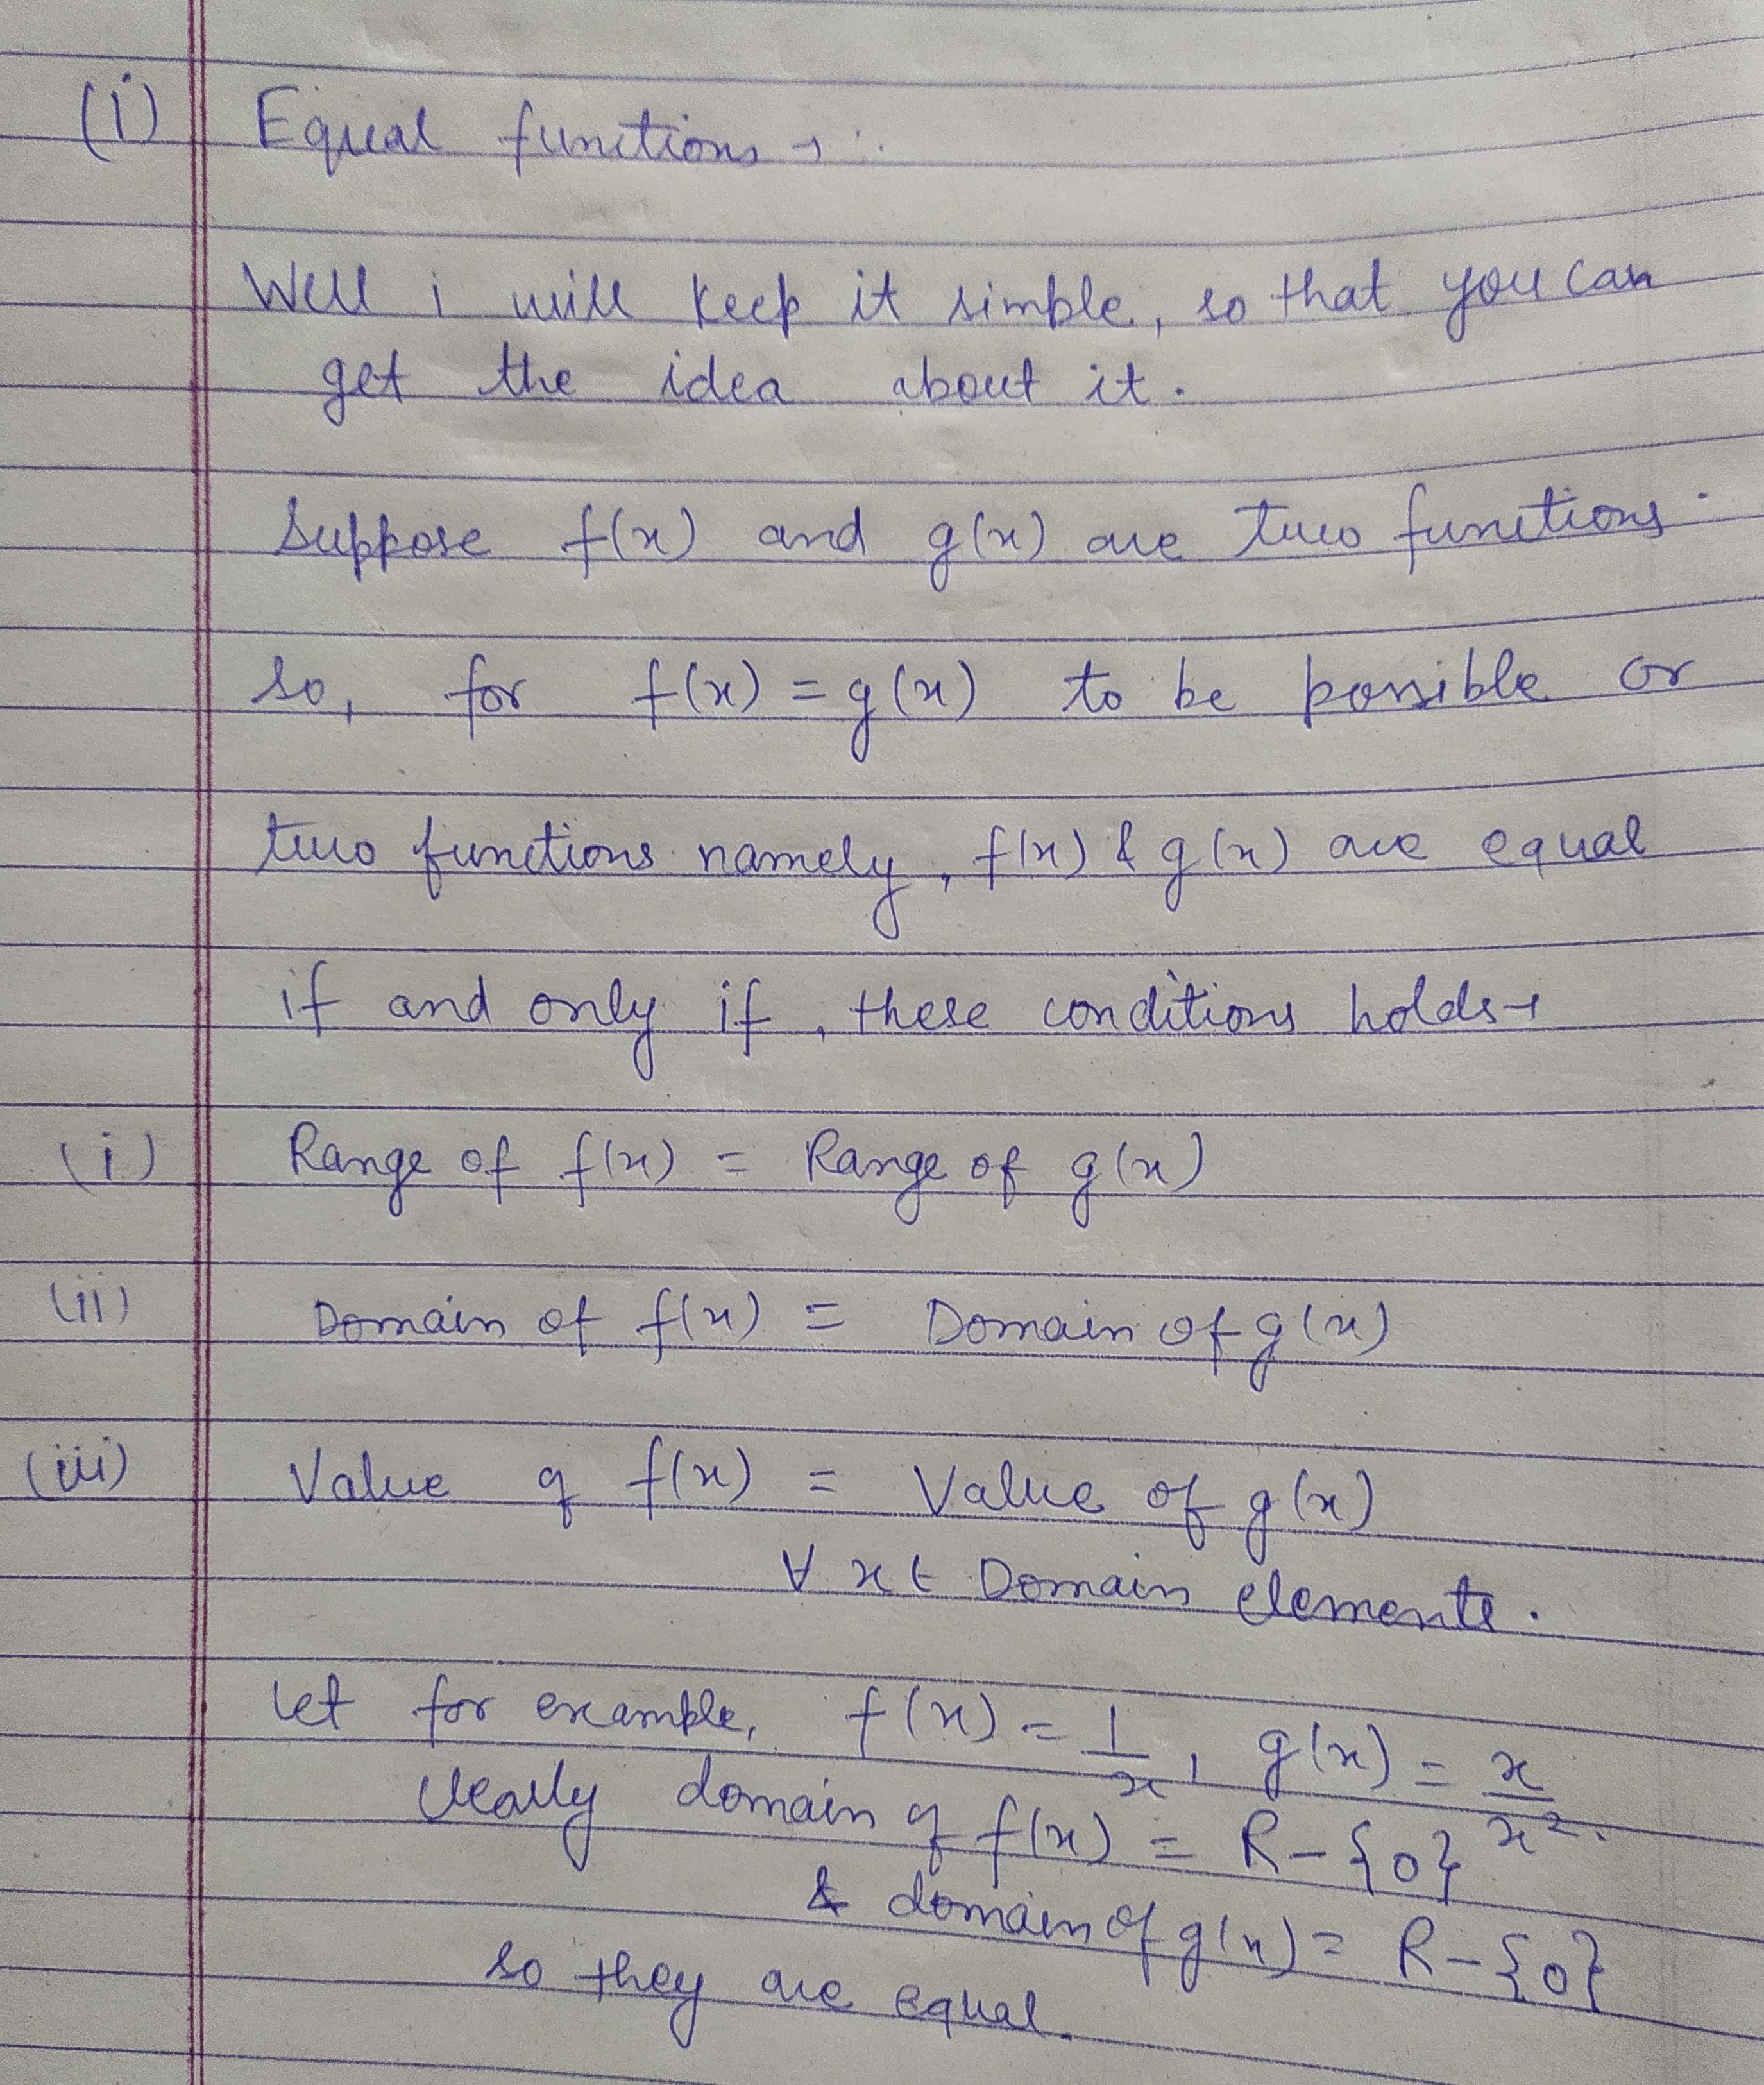 (i) Equal functions → :
Well i will keep it simple, so that you can
get the idea about it.
Suppose f(x) and g(x) are two functions.
so, for f(x) = g(x) to be possible or
two functions namely, f(x) & g(x) are equal
if and only if, these conditions holds→
(i) Range of f(x) = Range of g(x)
(ii) Domain of f(x) = Domain of g(x)
(iii) Value of f(x) = Value of g(x)
∀ x ∈ Domain elements.
let for example, f(x) = 1/x, g(x) = x/x².
Clearly domain of f(x) = R-{0}
& domain of g(x) = R-{0}
so they are equal.